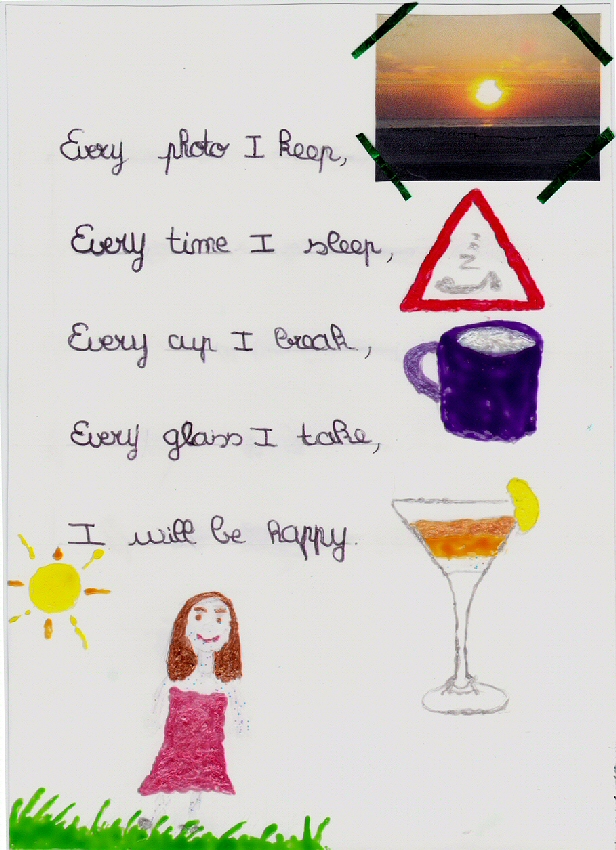 Every photo I keep,
Every time I sleep,
Every cup I break,
Every glass I take,
I will be happy.